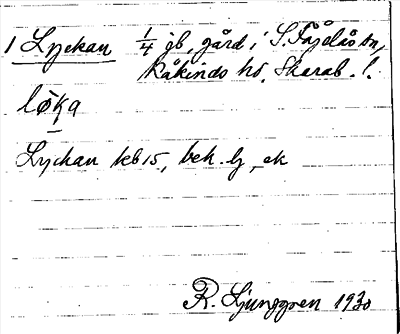 1 Lyckan ¼ gb, gård i S. Fågelås sn,
Kåkinds hd. Skarab. l.
løka
Lyckan kb 15, bek. ly, ek
R. Ljunggren 1930